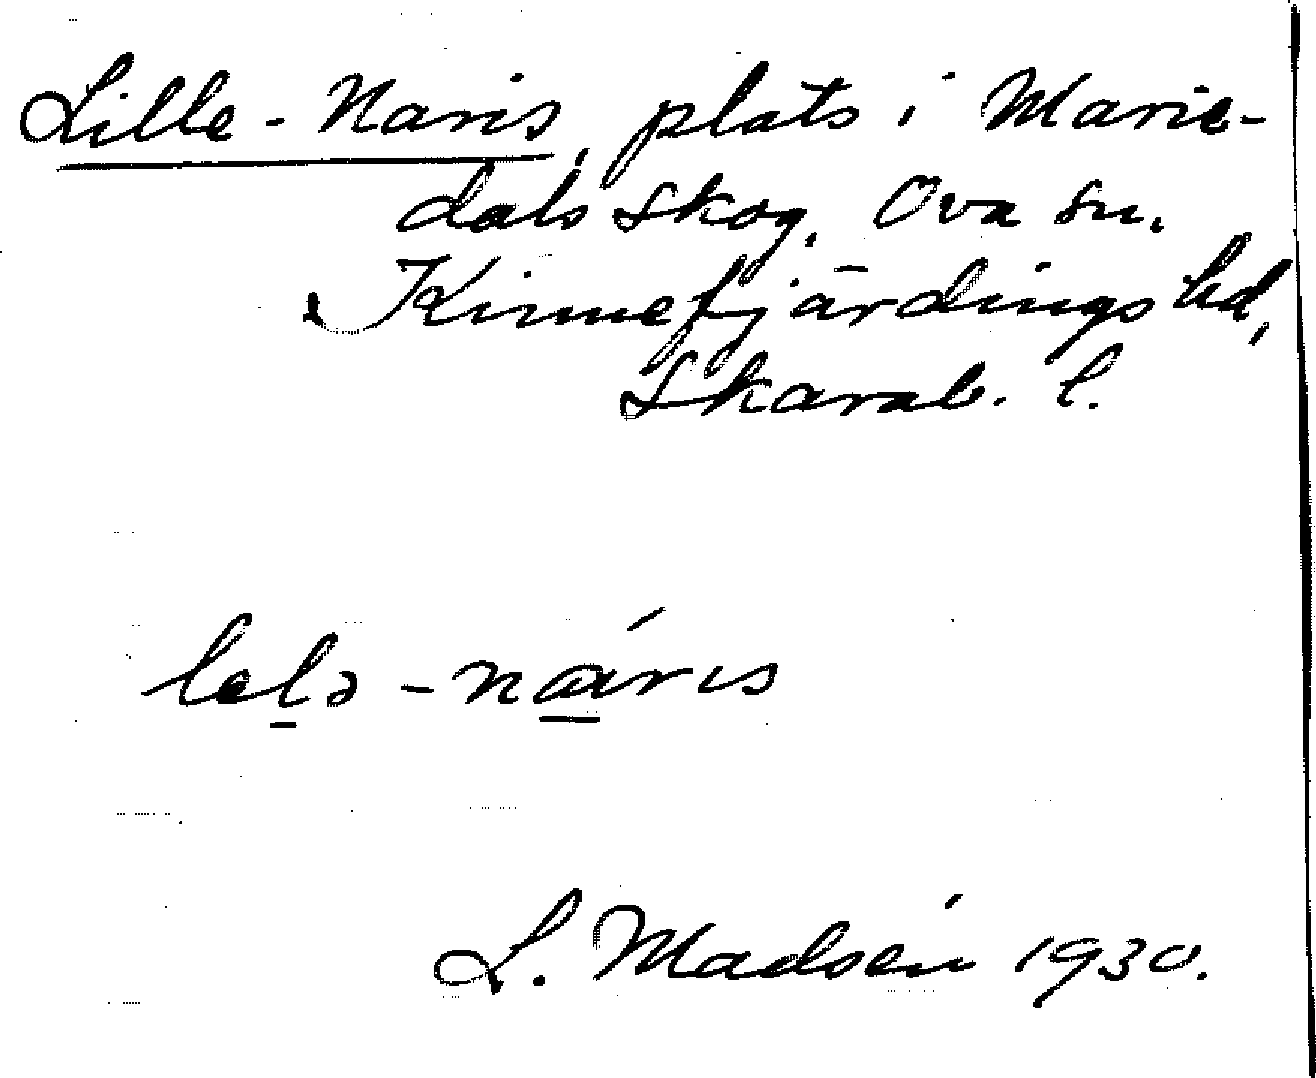 Lille-Naris, plats i Marie-
dals skog. Ova sn.
Kinnefjärdings hd,
Skarab. l.
lelə-náris
L. Madsén 1930.